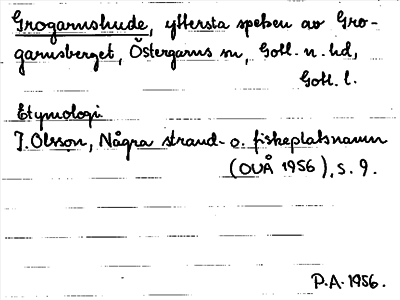 Grogarnshude, yttersta spetsen av Gro-
garnsberget, Östergarns sn, Gotl. n. hd,
Gotl. l.
Etymologi
I. Olsson, Några strand- o. fiskeplatsnamn
(OUÅ 1956), s. 9.
P.A. 1956.